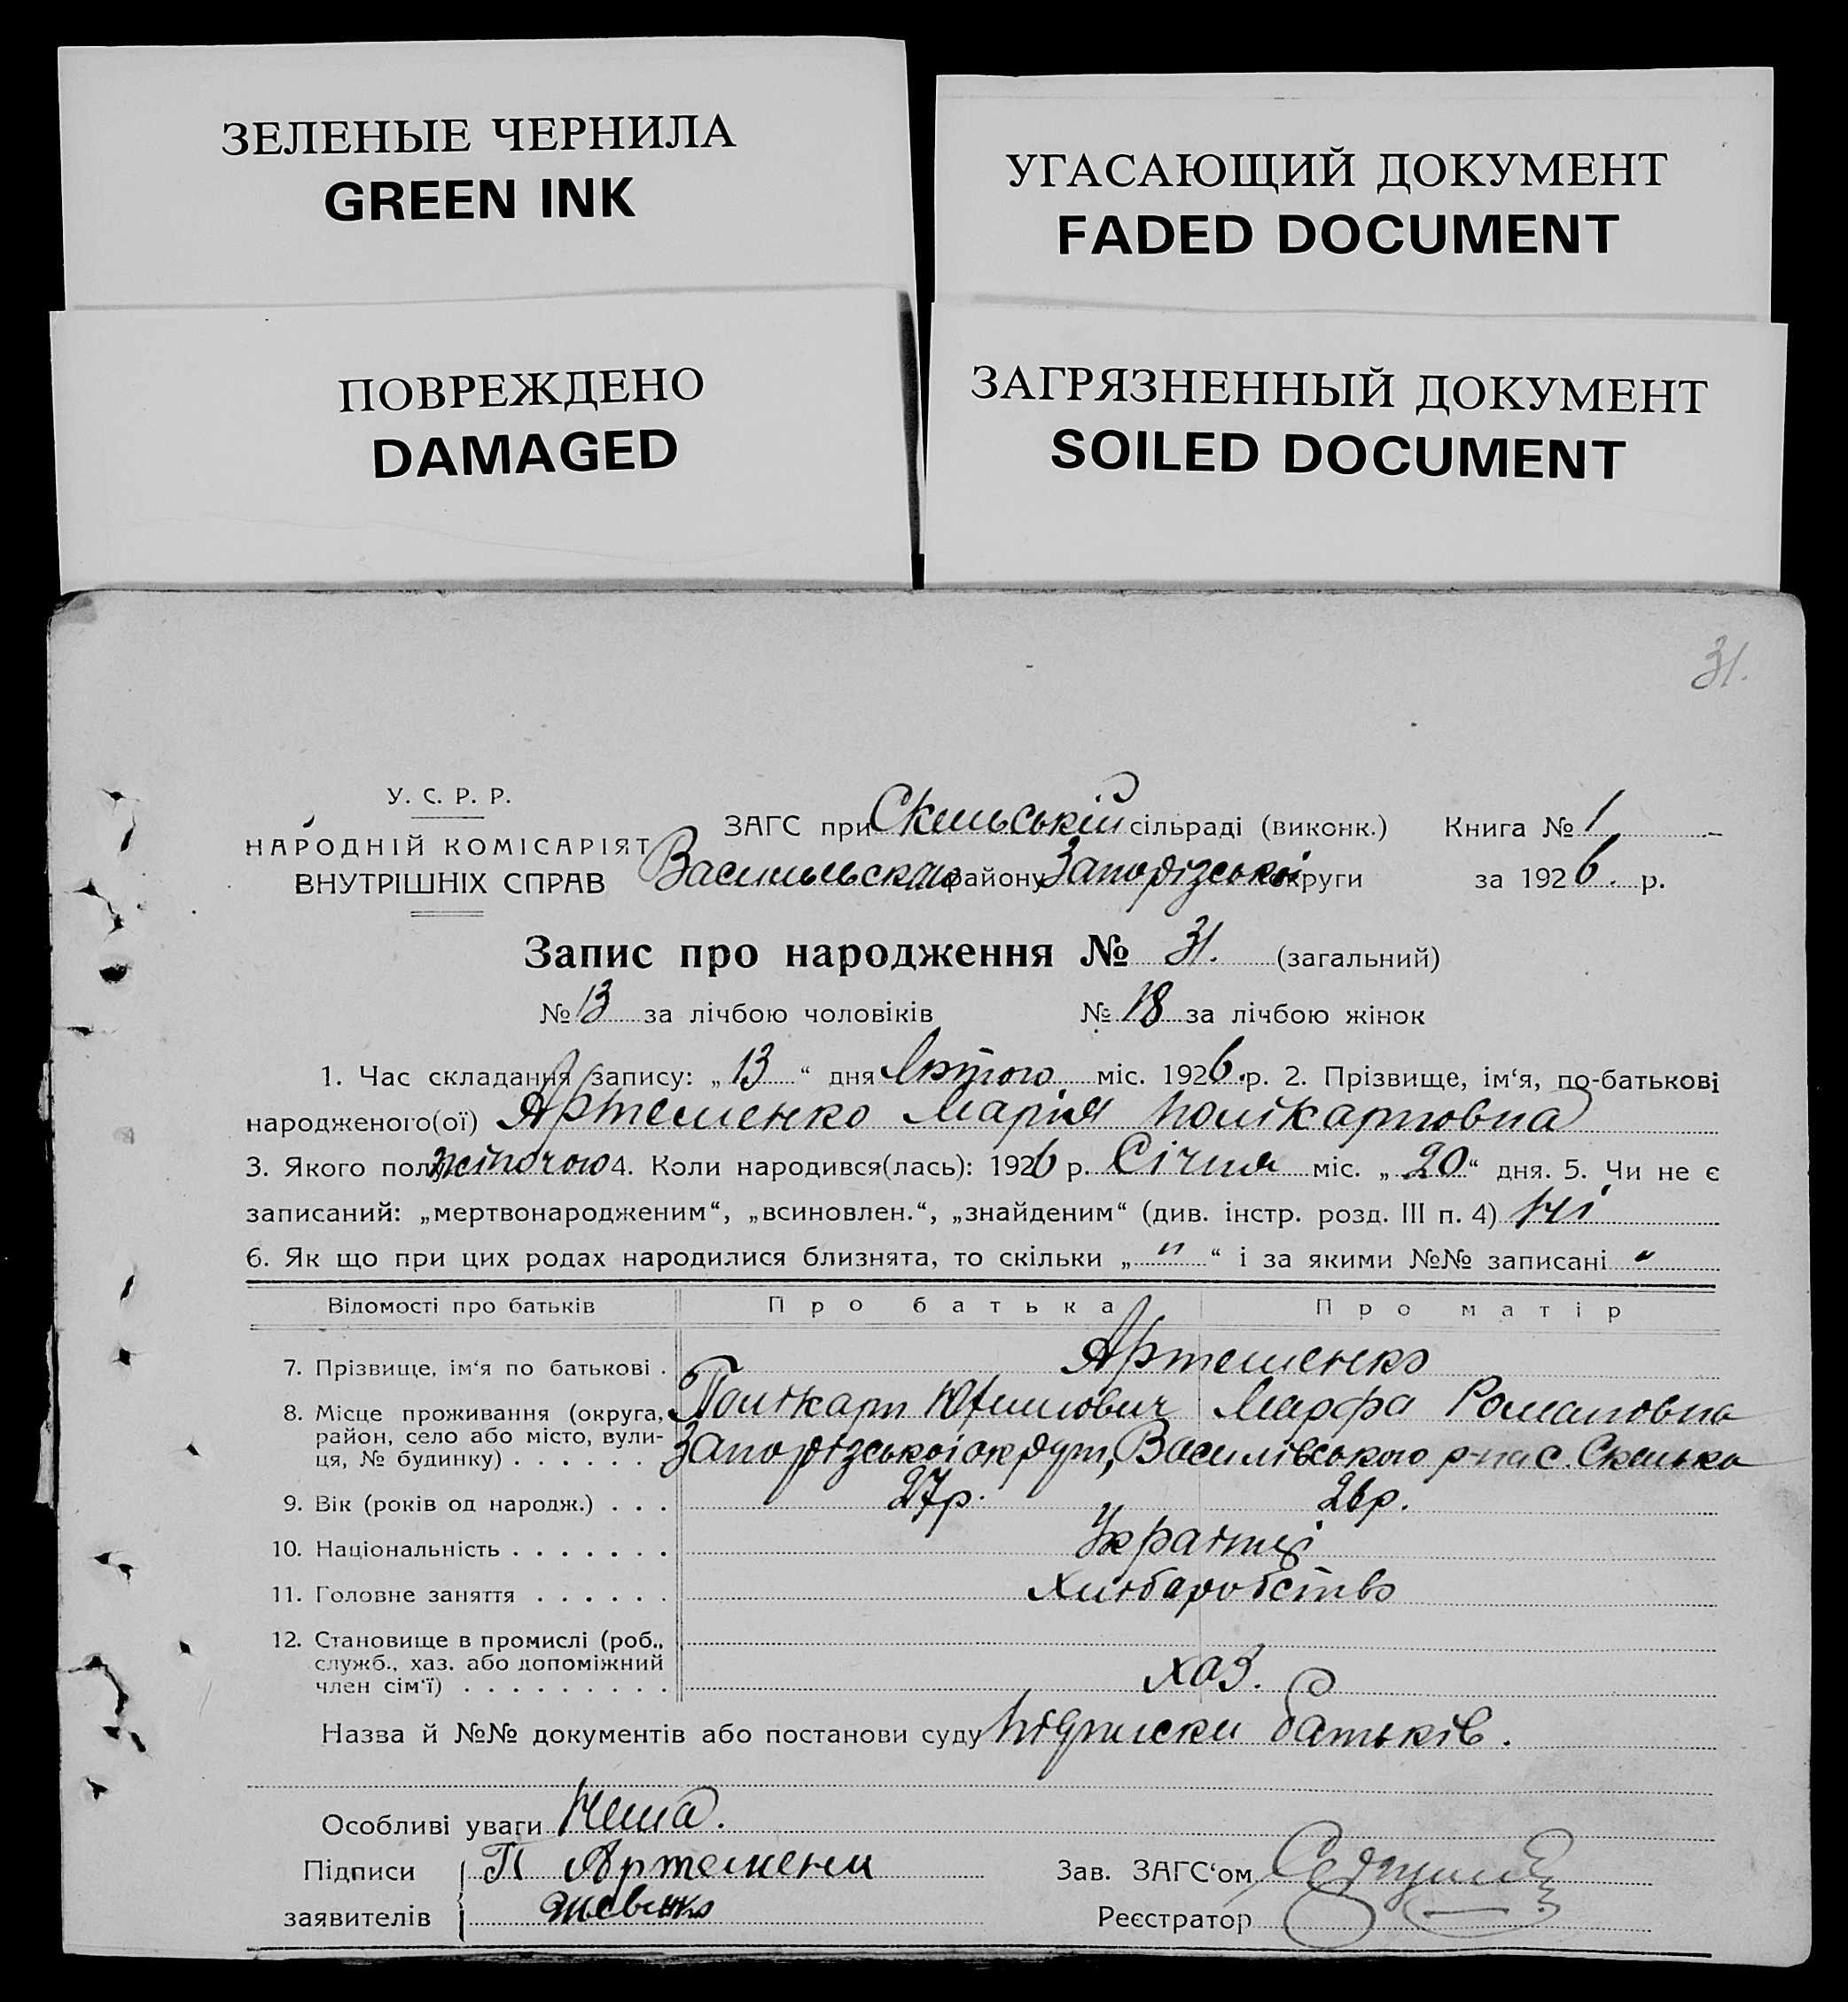 ЗЕЛЕНЫЕ ЧЕРНИЛА
GREEN INK
УГАСАЮЩИЙ ДОКУМЕНТ
FADED DOCUMENT
ПОВРЕЖДЕНО
DAMAGED
ЗАГРЯЗНЕННЫЙ ДОКУМЕНТ
SOILED DOCUMENT
31.
У. С. Р. Р.
НАРОДНІЙ КОМІСАРІЯТ
ВНУТРІШНІХ СПРАВ
ЗАГС при Скельській сільраді (виконк.) Книга № 1
Васильевскаго району Запорізської округи за 1926. р.
Запис про народження № 31. (загальний)
№ 13 за лічбою чоловіків № 18 за лічбою жінок
1. Час складання запису: „13“ дня Лютого міс. 1926.р. 2. Прізвище, ім‘я, по-батькові
народженого(ої) Артеменко Марія Полікарповна
3. Якого полу жіночою 4. Коли народився(лась): 1926 р. Січня міс. „20“ дня. 5. Чи не є
записаний: „мертвонародженим“, „всиновлен.“, „знайденим“ (див. інстр. розд. III п. 4) Ні
6. Як що при цих родах народилися близнята, то скільки „ " “ і за якими №№ записані "
Відомості про батьків Про батька Про матір
7. Прізвище, ім‘я по батькові . Артеменко
Полікарп Юхимович Марфа Романовна
8. Місце проживання (округа, район, село або місто, вули-ця, № будинку) . . . . . . Запорізської округи, Василівського р-на с. Скелька
9. Вік (років од народж.) . . . 27р. 26р.
10. Національність . . . . . . . Українці
11. Головне заняття . . . . . . Хлібаробство
12. Становище в промислі (роб., служб., хаз. або допоміжний член сім‘ї) . . . . . . . . . хаз.
Назва й №№ документів або постанови суду Підписки батьків.
Особливі уваги Нема.
Підписи заявителів П Артемени
Зав. ЗАГС‘ом
Реєстратор